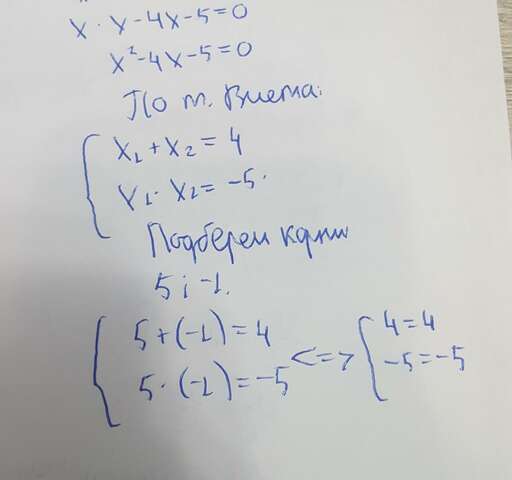 x · x - 4x - 5 = 0
x² - 4x - 5 = 0
По т. Виета:
x₁ + x₂ = 4
x₁ · x₂ = -5
Подберем корни
5 ; -1.
5 + (-1) = 4
5 · (-1) = -5
<=>
4 = 4
-5 = -5